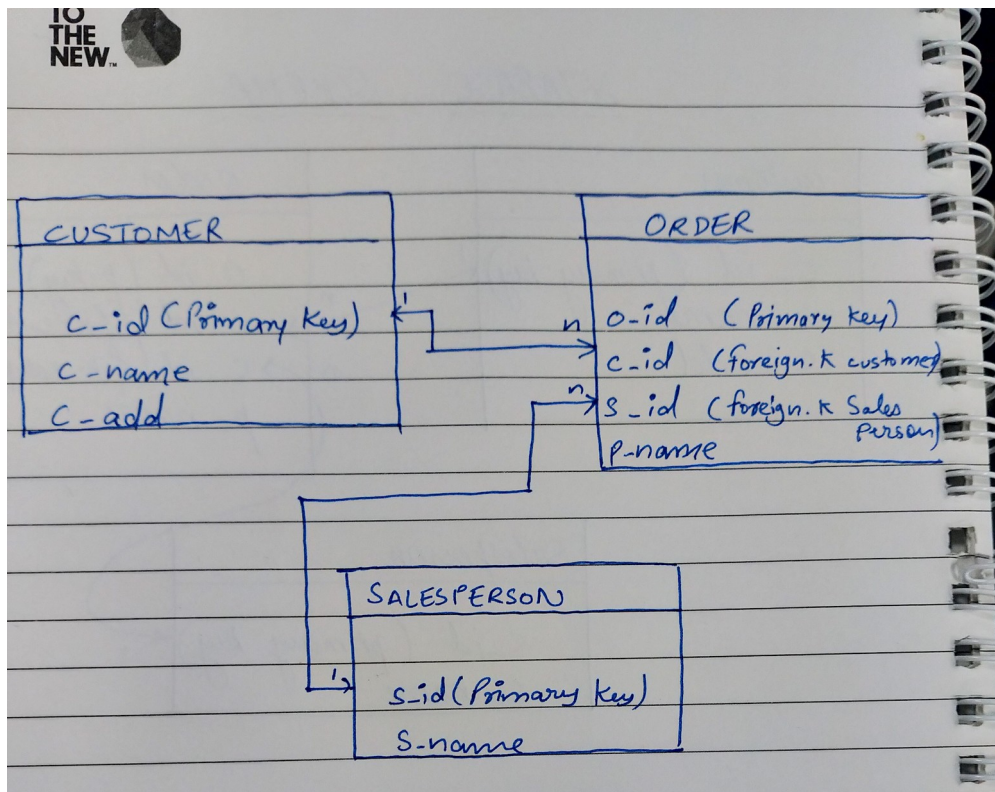 TO
THE
NEW™
CUSTOMER
C-id (Primary Key)
C-name
C-add
1
n
ORDER
O-id (Primary key)
C-id (foreign.K customer)
n
S-id (foreign.K Sales
Person)
P-name
SALESPERSON
1
S-id (Primary Key)
S-name